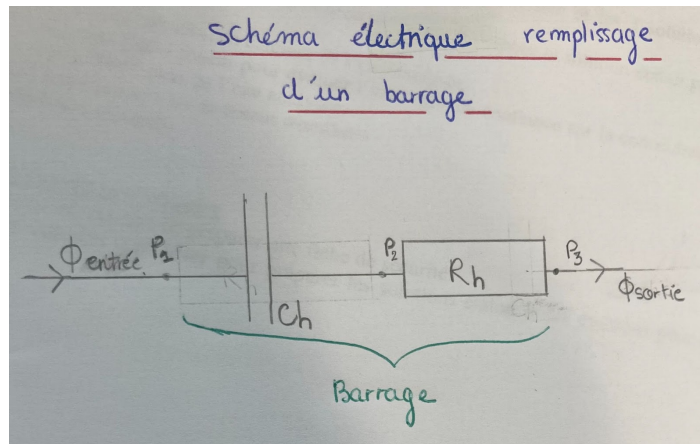 schéma électrique remplissage
d'un barrage
Φentrée P1 P2 Rh P3 Φsortie
Ch
Barrage